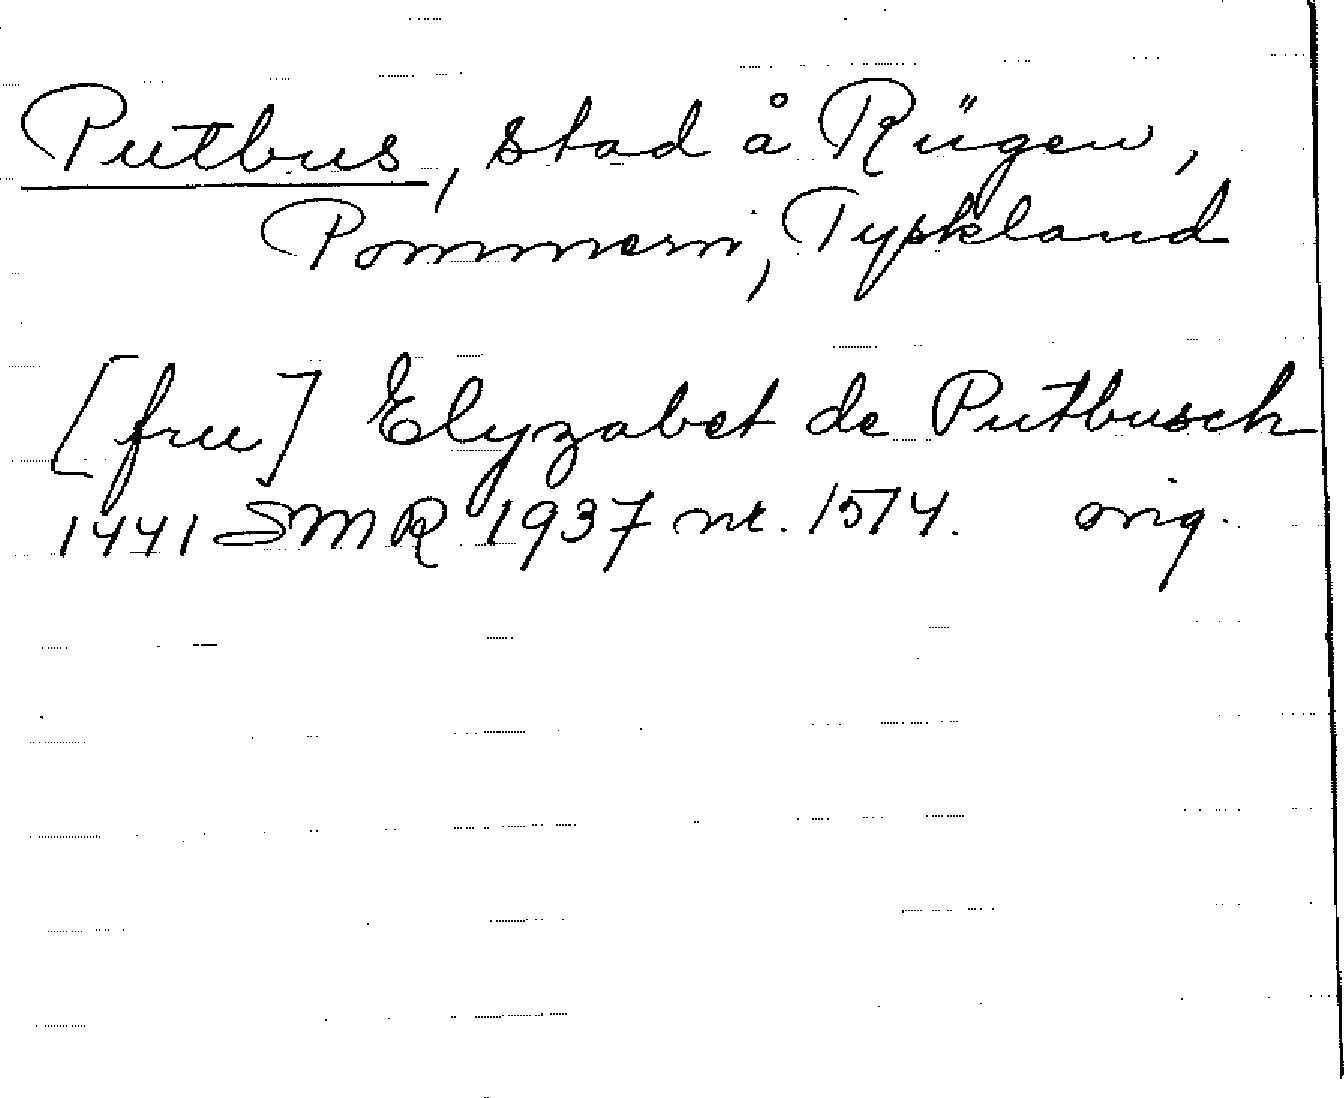 Putbus, stad å Rügen,
Pommern, Tyskland
[fru] Elyzabet de Putbusch
1441 SMR 1937 nr. 1574. orig.